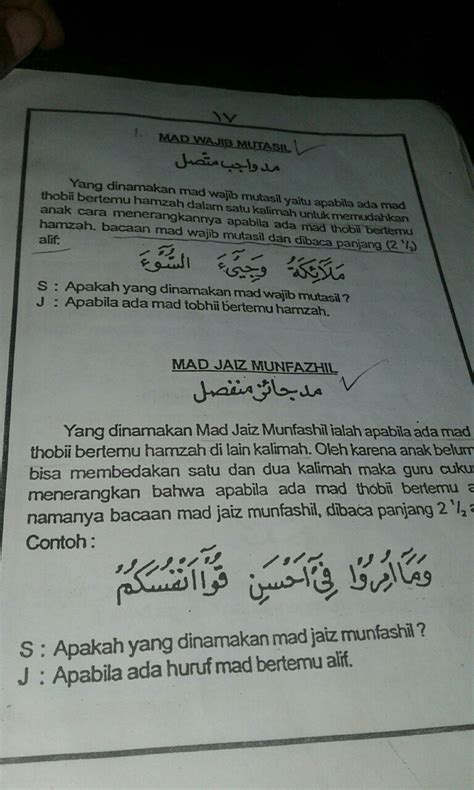 ١٧
1. MAD WAJIB MUTASIL
مد واجب متصل
Yang dinamakan mad wajib mutasil yaitu apabila ada mad
thobii bertemu hamzah dalam satu kalimah untuk memudahkan
anak cara menerangkannya apabila ada mad thobii bertemu
hamzah. bacaan mad wajib mutasil dan dibaca panjang (2 ¹/₂)
alif:
مَلَآئِكَةُ وَجِيْٓءَ السُّوْٓءَ
S : Apakah yang dinamakan mad wajib mutasil ?
J : Apabila ada mad tobhii bertemu hamzah.
MAD JAIZ MUNFAZHIL
مد جائز منفصل
Yang dinamakan Mad Jaiz Munfashil ialah apabila ada mad
thobii bertemu hamzah di lain kalimah. Oleh karena anak belum
bisa membedakan satu dan dua kalimah maka guru cukup
menerangkan bahwa apabila ada mad thobii bertemu a
namanya bacaan mad jaiz munfashil, dibaca panjang 2 ¹/₂ a
Contoh :
وَمَآ اُمِرُوْا فِيْٓ اَحْسَنِ قُوْٓا اَنْفُسَكُمْ
S : Apakah yang dinamakan mad jaiz munfashil ?
J : Apabila ada huruf mad bertemu alif.